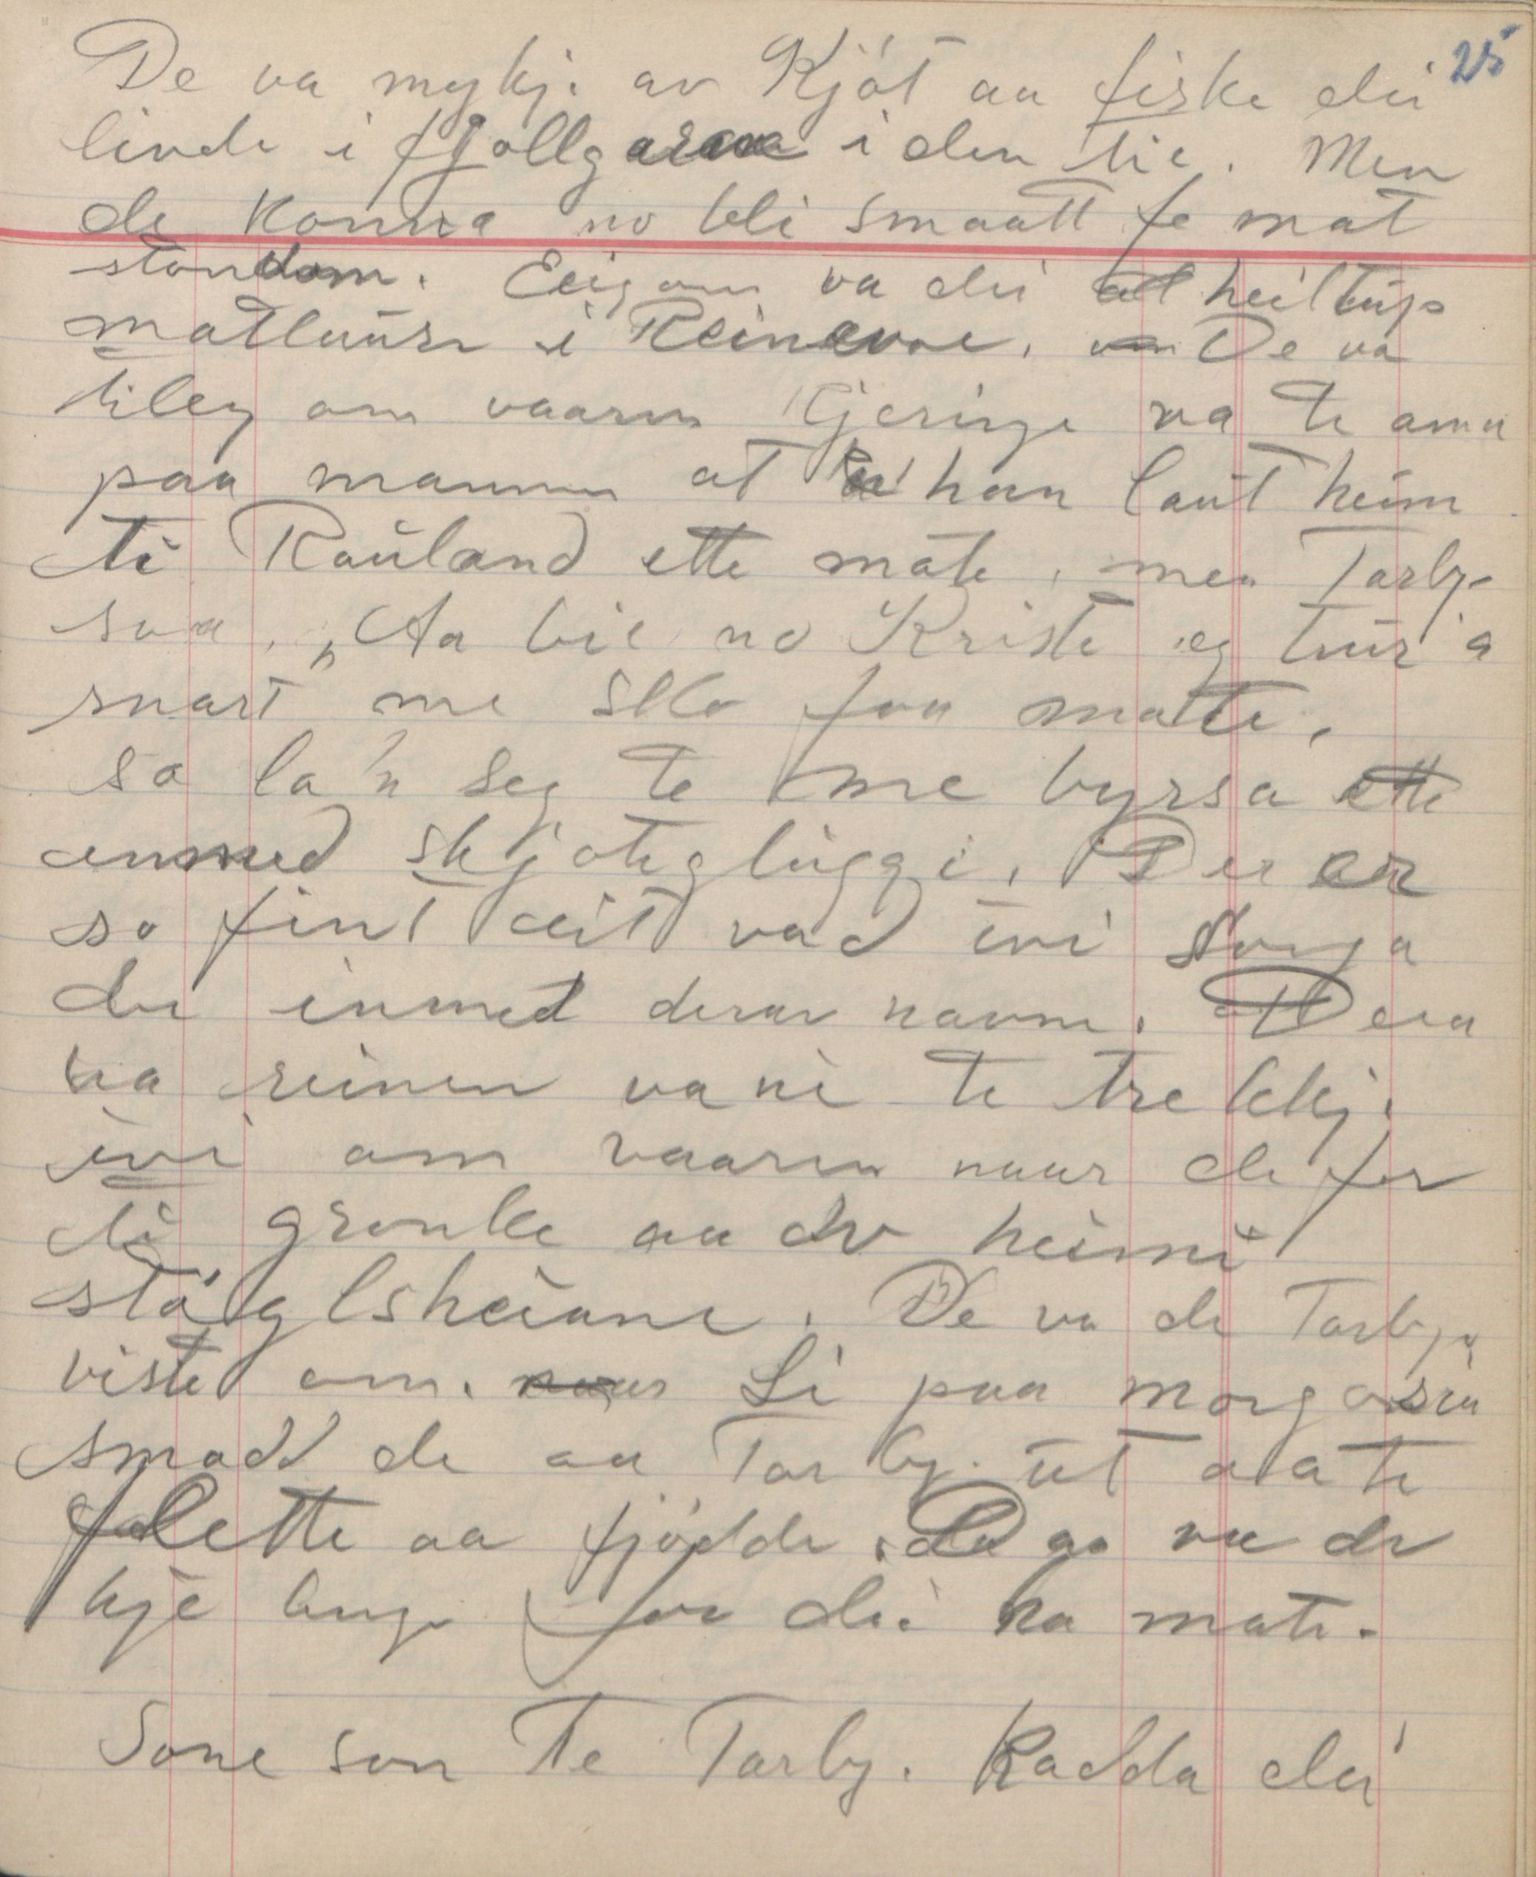 25
De va mykji av Kjöt aa fiske dei
livde i fjøllgarane i den tie. Men
de konna no bli smaatt fe mat
stondom. Eeigom va dei heiltups
matlause i Reinevoe. De va
tileg om vaaren Kjeringe va te ama
paa mannen at han laut heim
ti Rauland ette mate, men Tarby.
sva. „Aa bie no Kriste eg trur a
snart me sko faa matte.
so la 'n seg te me byrsa ette
innmed skjoteglüggi. Der er
so fint eit vad ivi Vonga
du innmed derar navne. Dera
ha reinen vane te trekkji
ivi om vaaren naar de for
ti gronke aa do heimi
stöglsheiane. De va de Tarby
viste om. Li paa morgosia
smadd de aa Tarby. ut aa te
flette aa fjödde. Daa va de
kje lengi før dei ha mate.
Sone son Te Tarby. Kadda dei